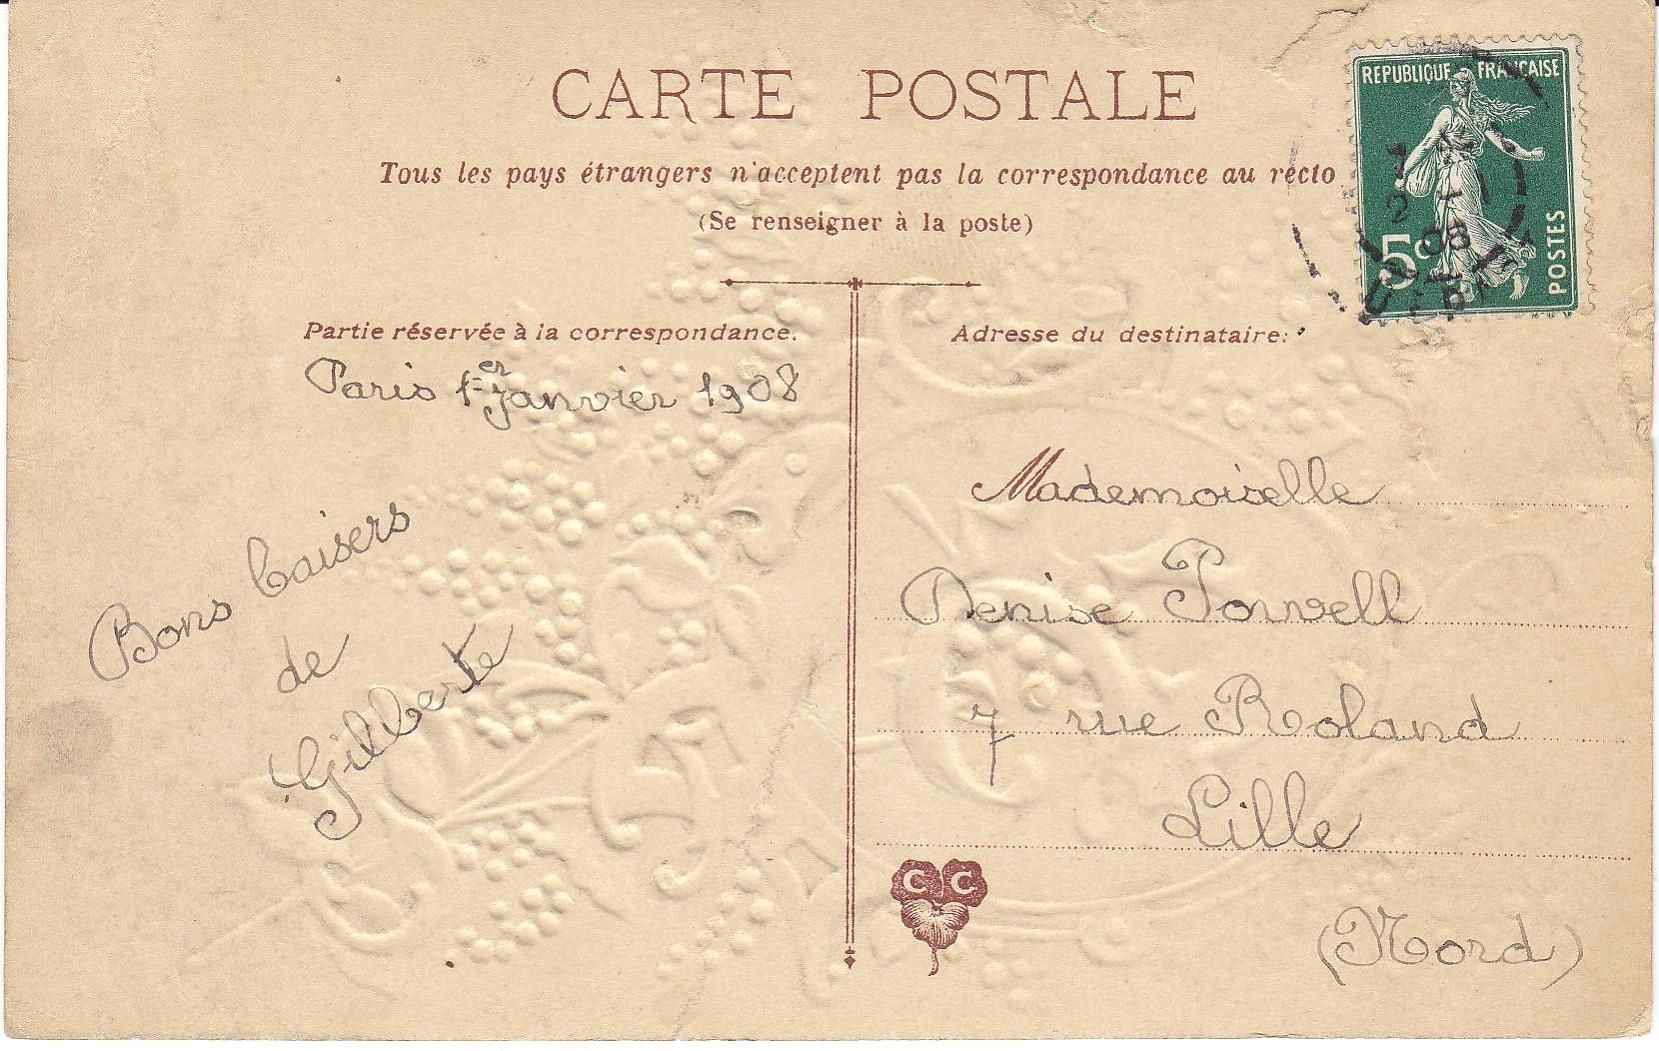 CARTE POSTALE
Tous les pays étrangers n'acceptent pas la correspondance au recto
(Se renseigner à la poste)
REPUBLIQUE FRANÇAISE
5c
POSTES
Partie réservée à la correspondance.
Paris 1er janvier 1908
Bons baisers
de
Gilberte
Adresse du destinataire:
Mademoiselle
Denise Porvell
7 rue Roland
Lille
(Nord)
C C